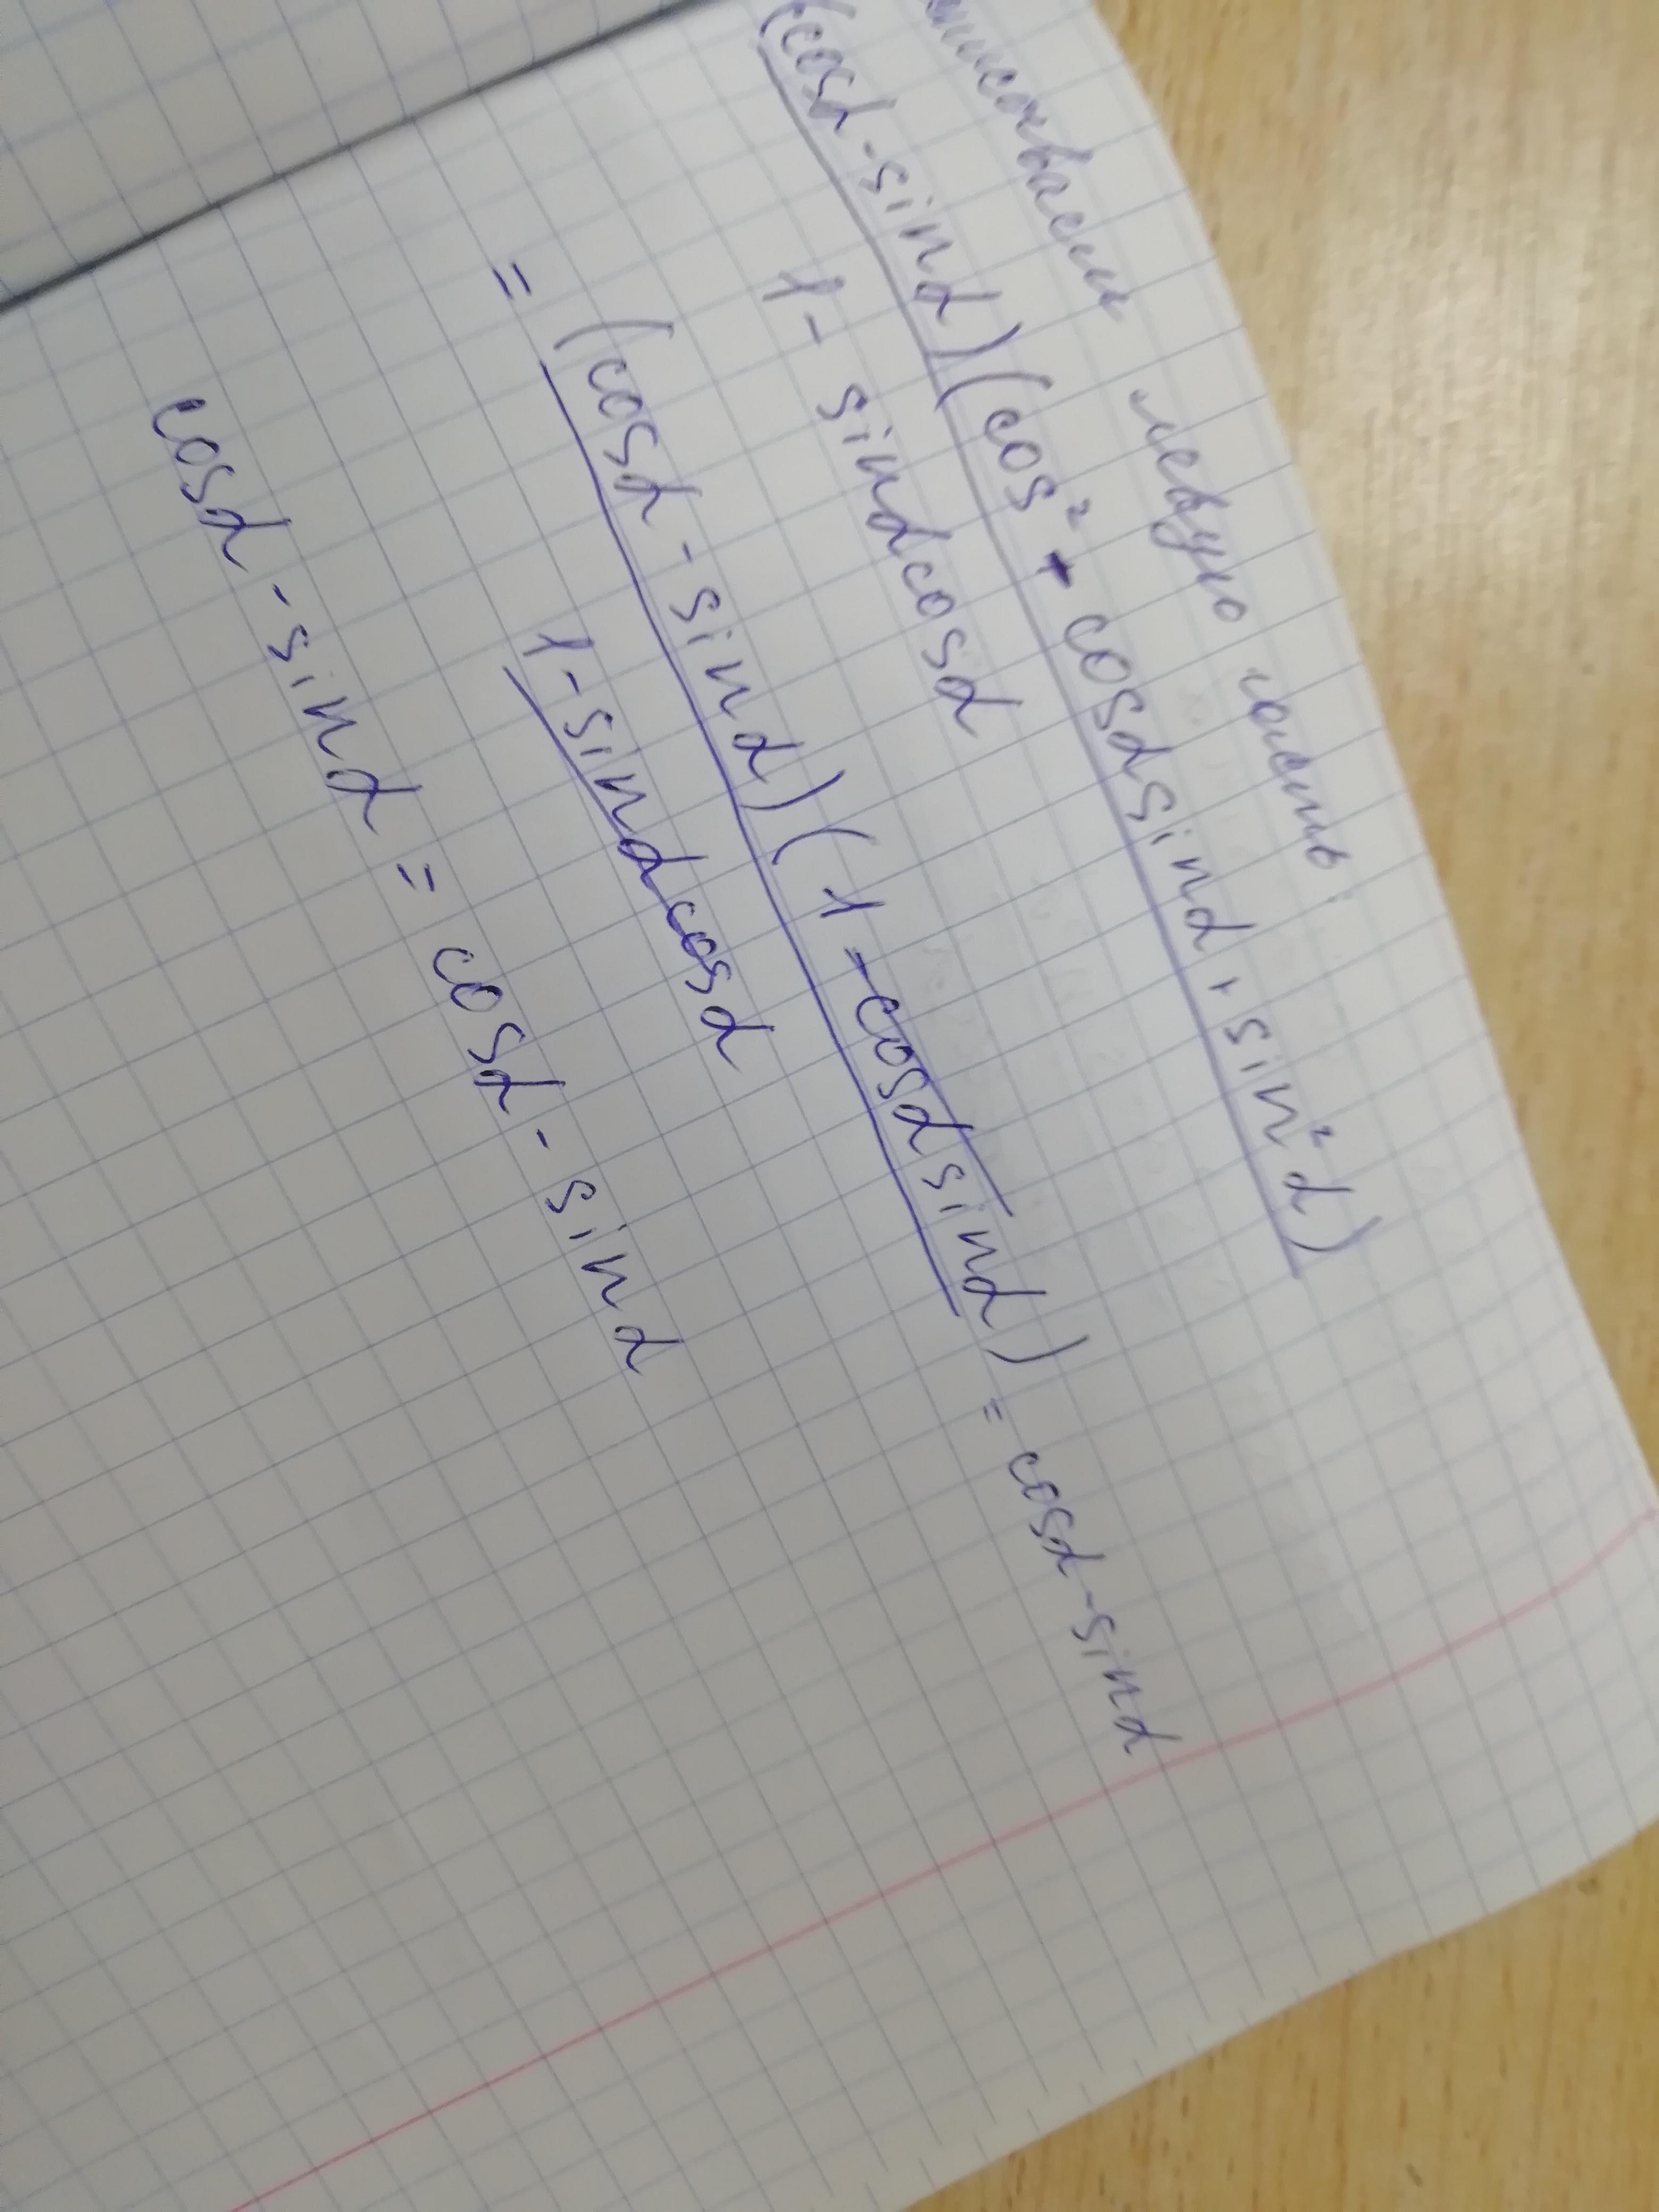 левую часть:
(cosα - sinα)(cos² + cosα sinα + sin²α)
1 - sinα cosα
= (cosα - sinα)(1 - cosα sinα) = cosα - sinα
1 - sinα cosα
cosα - sinα = cosα - sinα